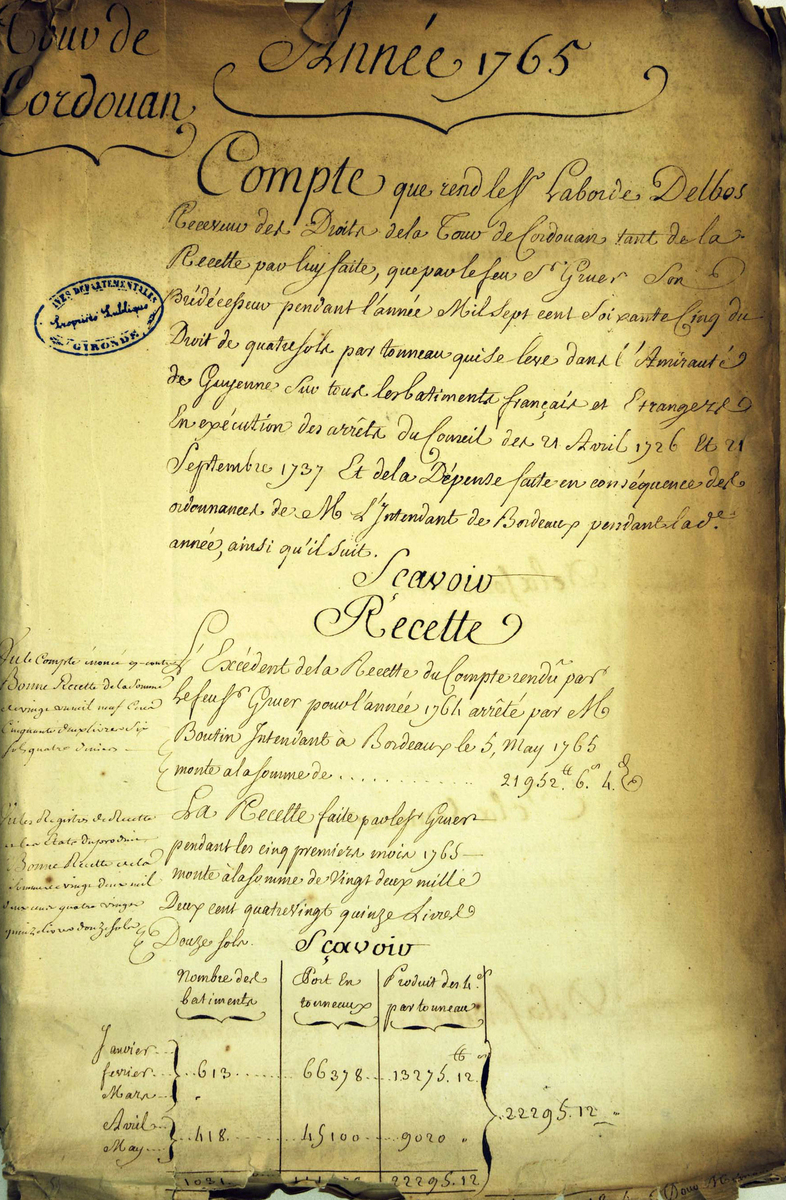 Tour de
Cordouan
Année 1765
Compte que rend le Sr. Laborde Delbos
Receveur des Droits de la Tour de Cordouan tant de la
Recette par luy faite, que par le feu Sr. Gruer Son
Prédécesseur pendant l'année Mil Sept cent Soixante Cinq du
Droit de quatre sols par tonneau qui se leve dans l'Amirauté
de Guyenne Sur tous les batiments français et Etrangers
En exécution des arrêts du Conseil des 21 Avril 1726 Et 21
Septembre 1737 Et de la Dépense faite en conséquence des
ordonnances de M L'Intendant de Bordeaux pendant lad.e
année, ainsi qu'il suit.
ARCHIVES DEPARTEMENTALES
Propriété Publique
GIRONDE
Sçavoir
Récette
L'Excédent de la Recette du Compte rendu par
Le feu Sr. Gruer pour l'année 1764 arrêté par M
Boutin Intendant à Bordeaux le 5, May 1765
monte a la somme de .............. 21952.tt 6.s 4.d
Vu le Compte énoncé cy contre
Bonne Recette de la Somme
de vingt un mil neuf Cent
Cinquante deux livres Six
sols quatre deniers
La Recette faite par le Sr. Gruer
pendant les cinq premiers mois 1765
monte à la somme de Vingt deux mille
Deux cent quatre vingt quinze Livres
Douze sols.
Vu les Registres de Recette
et les Etats du produit
Bonne Recette de la
Somme de vingt deux mil
deux cent quatre vingt
quinze livres douze sols
Sçavoir
Nombre des batiments | Port En tonneaux | Produit des 4.s par tonneau
Janvier
fevrier ..613....... 66378... 13275.tt 12.s
Mars
22295.12 "
Avril
May ...418....... 45100.... 9020 "
1031 22295.12